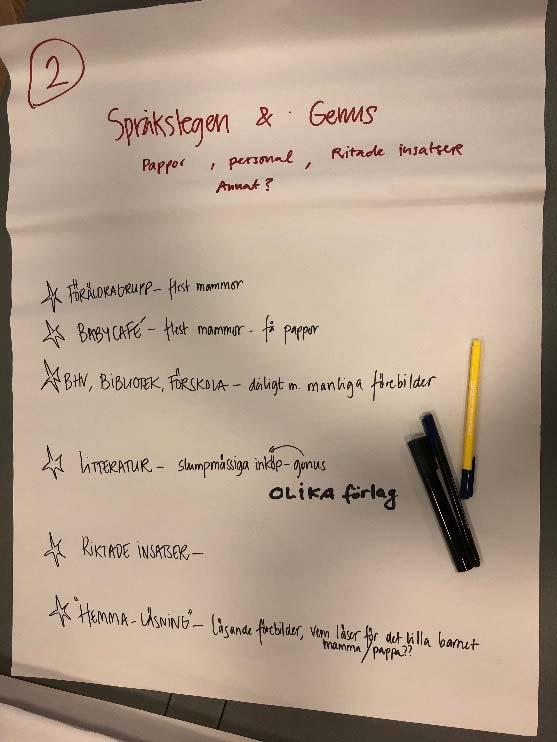 2
Språkstegen & Genus
Pappor, personal, Ritade insatsere
Annat?
FÖRÄLDRAGRUPP - flest mammor
BABYCAFÉ - flest mammor - få pappor
BHV, BIBLIOTEK, FÖRSKOLA - dåligt m. manliga förebilder
LITTERATUR - slumpmässiga inköp - genus
OLIKA förlag
RIKTADE INSATSER -
"HEMMA-LÄSNING" - läsande förebilder, vem läser för det lilla barnet
mamma/pappa??